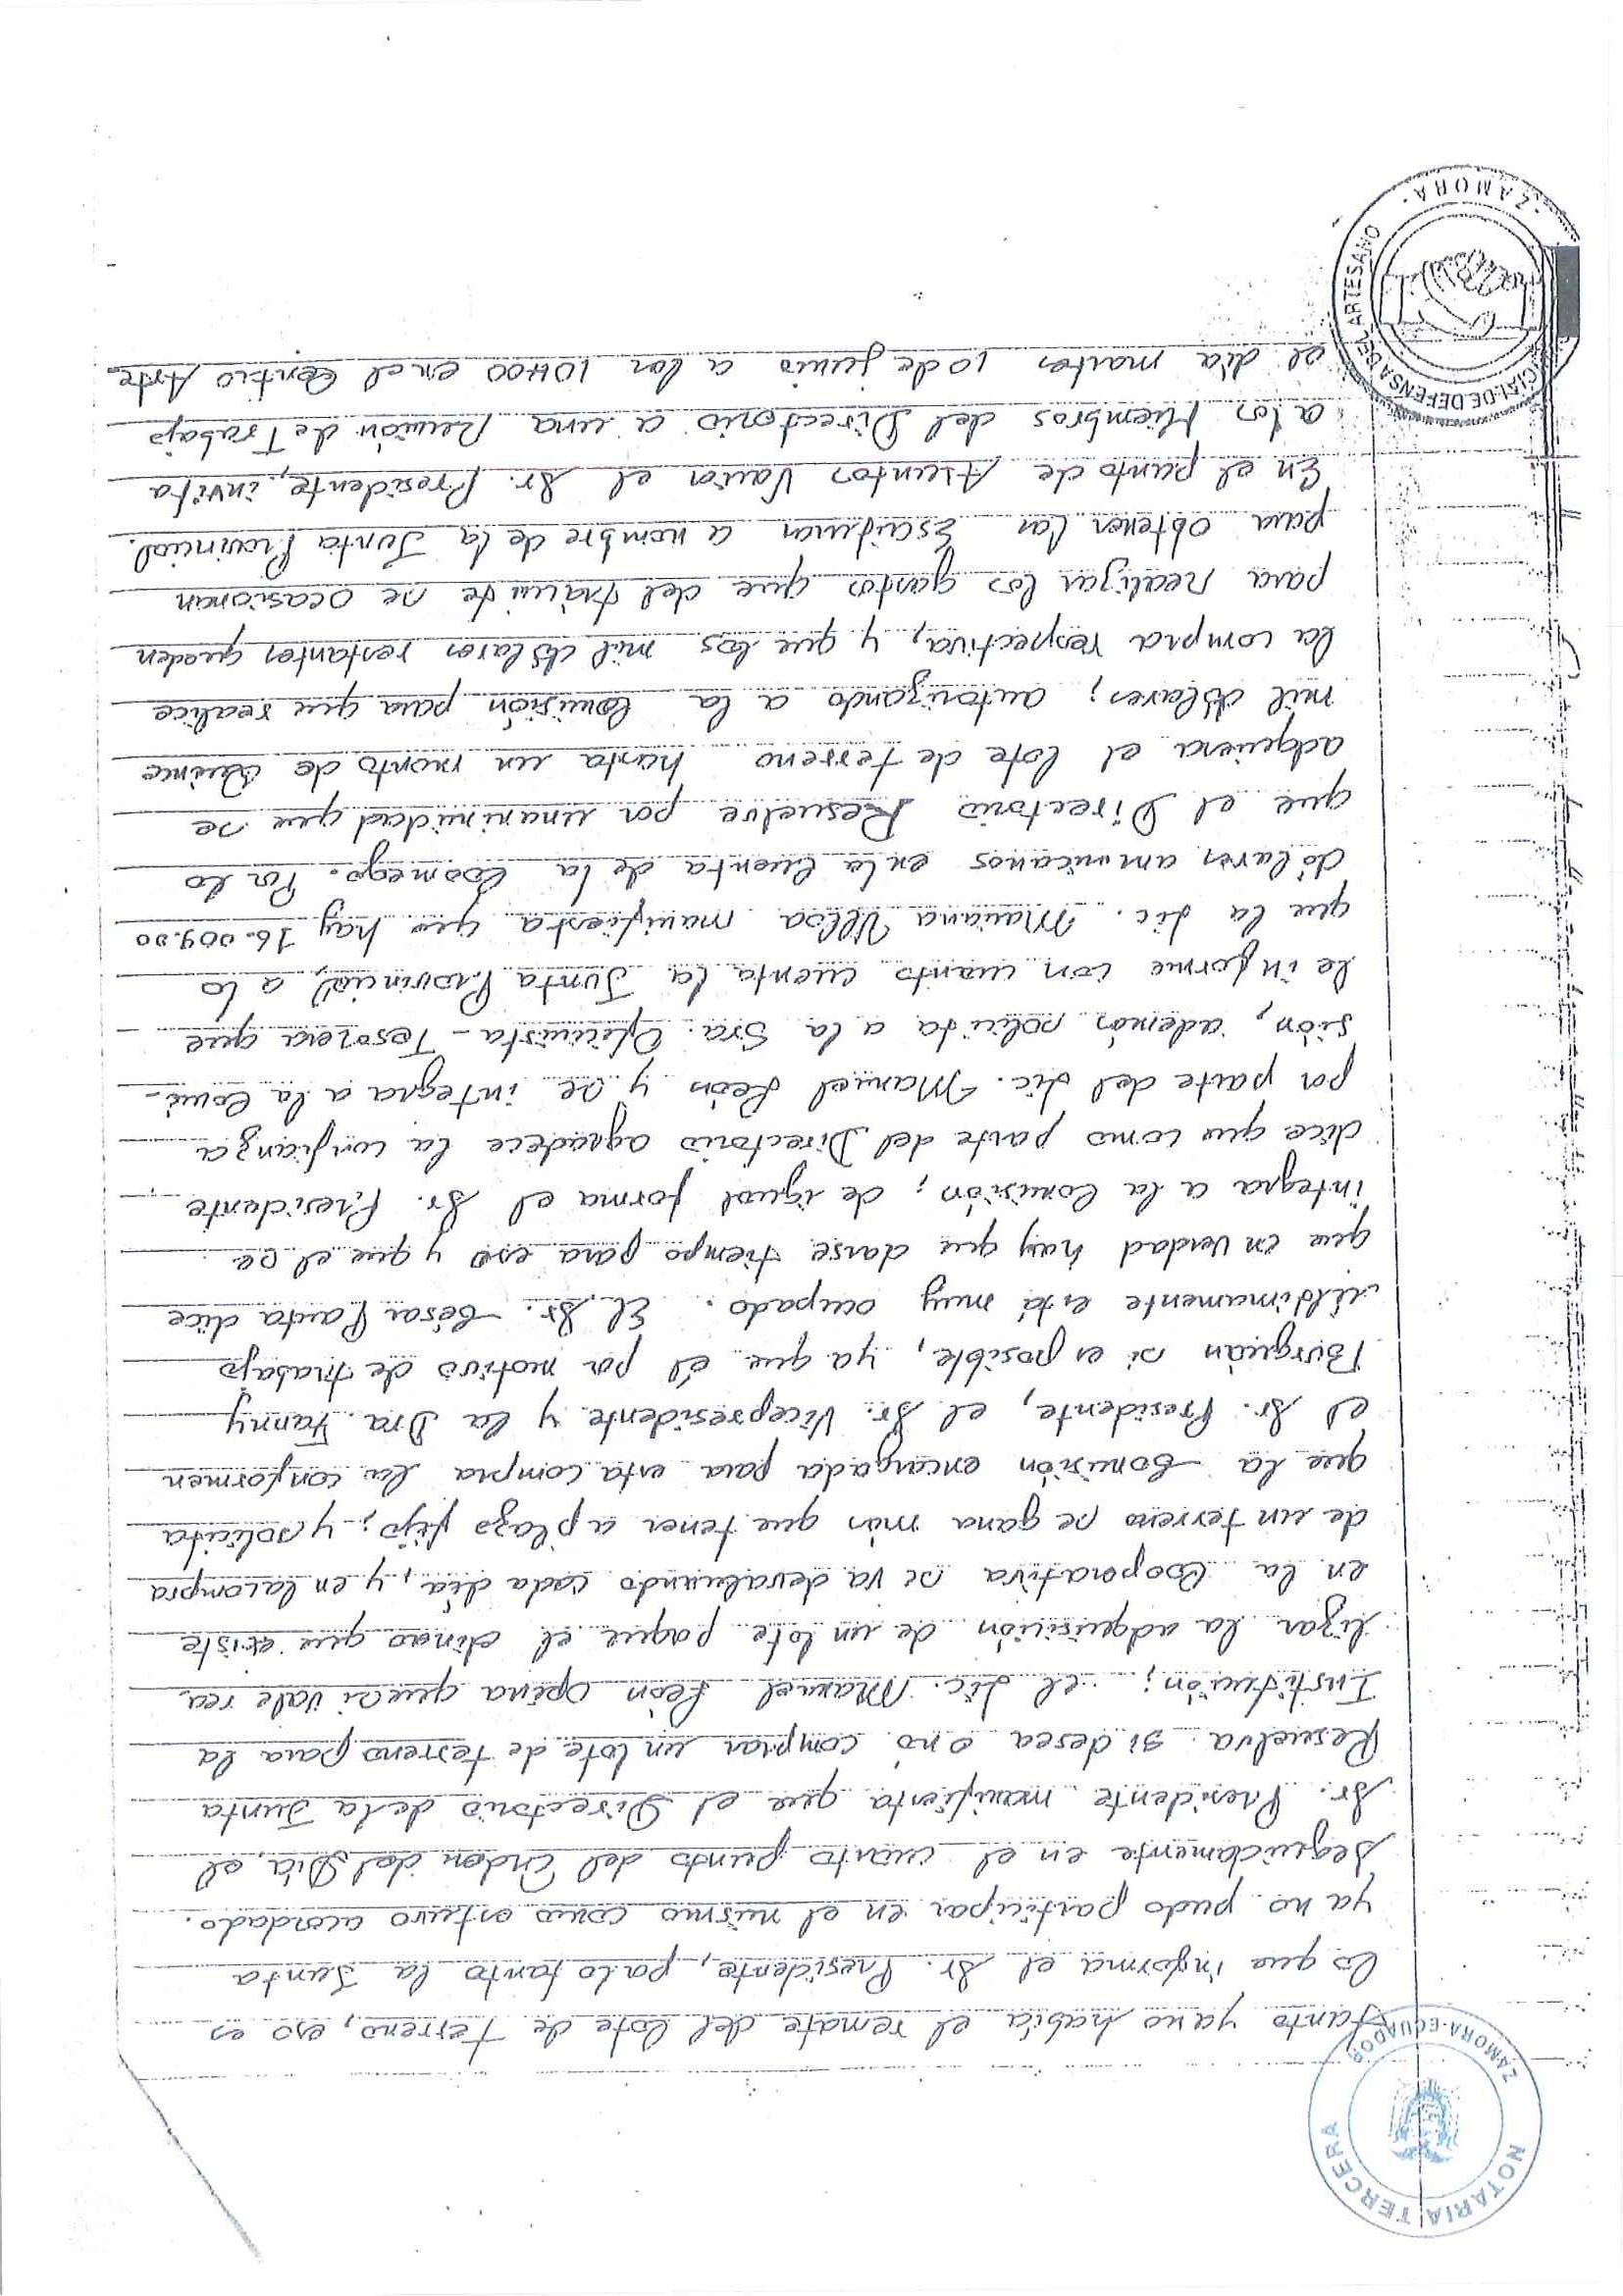 NOTARIA TERCERA
ZAMORA-ECUADOR
tanto ya no había el remate del lote de terreno, eso es
lo que informa el Sr. Presidente, por lo tanto la Junta
ya no pudo participar en el mismo como estuvo acordado.
Seguidamente en el cuarto punto del Orden del Día, el
Sr. Presidente manifiesta que el Directorio de la Junta
Resuelva si desea o nó comprar un lote de terreno para la
Institución; el Lic. Manuel León opina que si vale rea
lizar la adquisición de un lote porque el dinero que existe
en la Cooperativa se va devaluando cada día, y en la compra
de un terreno se gana más que tener a plazo fijo; y solicita
que la Comisión encargada para esta compra la conformen
el Sr. Presidente, el Sr. Vicepresidente y la Dra. Fanny
Burguán si es posible, ya que él por motivo de trabajo
últimamente está muy ocupado. El Sr. César Pauta dice
que en verdad hay que darse tiempo para eso y que el se
integra a la Comisión; de igual forma el Sr. Presidente
dice que como parte del Directorio agradece la confianza
por parte del Lic. Manuel León y se integra a la Comi-
sión, además solicita a la Sra. Oficinista - Tesorera que
le informe con cuanto cuenta la Junta Provincial, a lo
que la Lic. Mariana Ulloa manifiesta que hay 16.009.00
dólares americanos en la Cuenta de la Coomego. Por lo
que el Directorio Resuelve por unanimidad que se
adquiera el lote de terreno hasta un monto de Quince
mil dólares; autorizando a la Comisión para que realice
la compra respectiva, y que los mil dólares restantes queden
para realizar los gastos que del trámite se ocasionan
para obtener las Escrituras a nombre de la Junta Provincial.
En el punto de Asuntos Varios el Sr. Presidente, invita
a los Miembros del Directorio a una Reunión de Trabajo
el día martes 10 de junio a las 10H00 en el Centro Arte
CIAL DE DEFENSA DEL ARTESANO
· ZAMORA ·